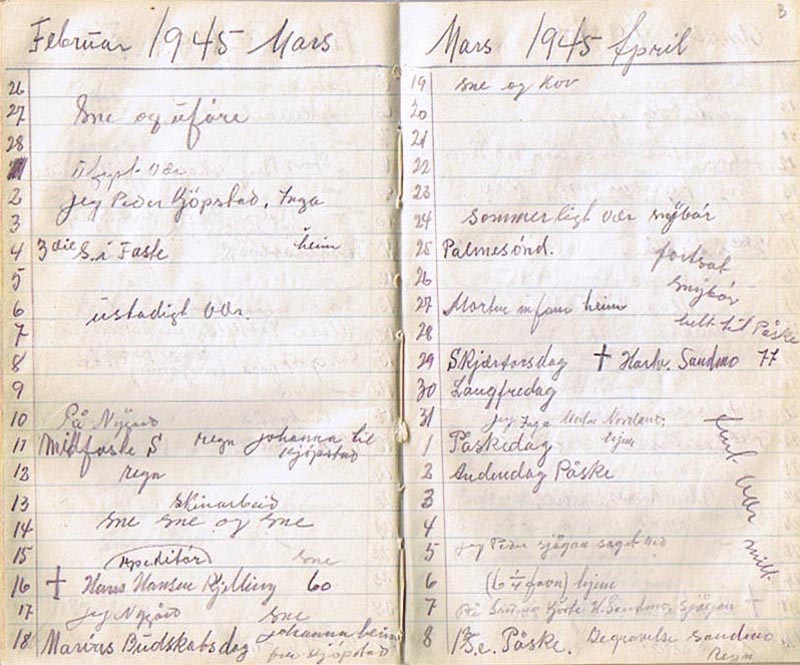 Februar 1945 Mars
26
27 Sne og uføre
28
1 vær
2 Jeg Peder Kjöpstad, Inga
3
4 3die S. i Faste heim
5
6 ustadigt vær.
7
8
9
10 På Nygård
11 Midfaste S regn Johanna til Kjöpstad
12 regn
13 Skinarbeid
14 sne sne og sne
15 sne
16 † Hans Hansen Kjelling 60
17 Jeg Nygård sne
18 Mariæs Budskabsdag Johanna heim fra Kjöpstad
Mars 1945 April
3
19 sne og kov
20
21
22
23
24 Sommerligt vær snÿbår
25 Palmesönd. fortsat
26 snÿbår
27 Morten heim
28 helt til Påske
29 Skjærtorsdag † Hartv. Sandmo 77
30 Langfredag
31 Jeg Inga Nordland.
1 Påskedag hejm
2 Andendag Påske
3
4
5 Jeg Peder sjågan saget ved
6 (6 ¼ favn) hejme
7 På Sandmo
8 1 S.e. Påske. Begravelse Sandmo
Regn
vær mildt